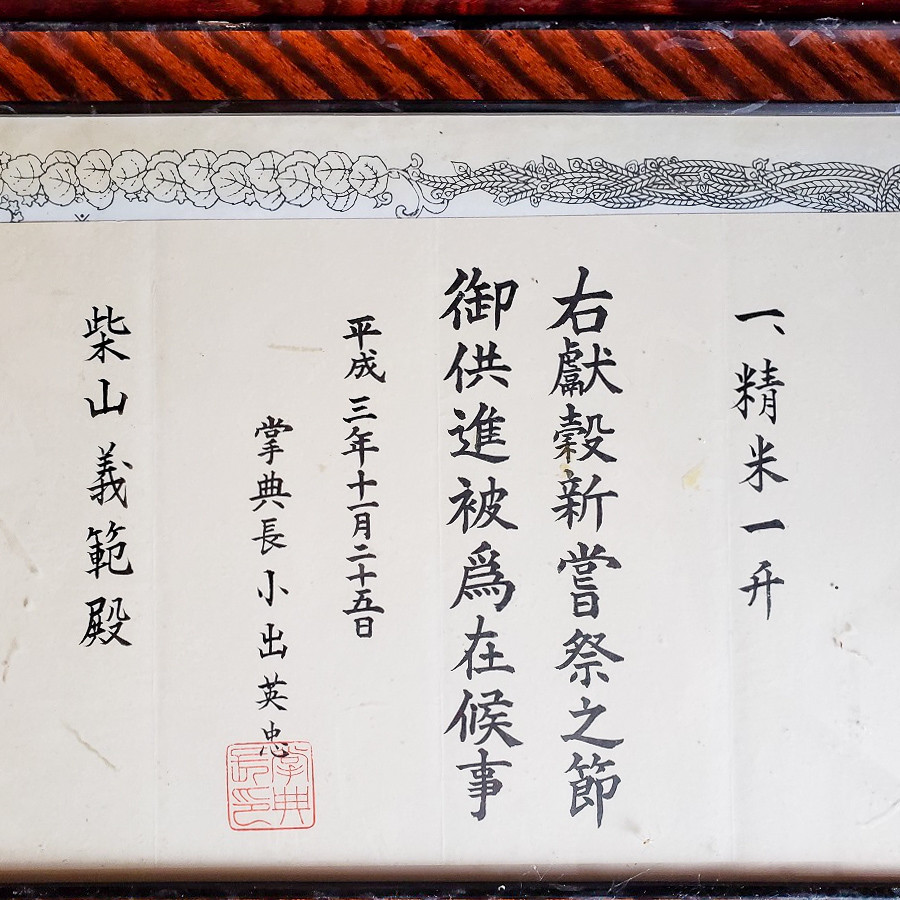 一、精米一升
右獻穀新嘗祭之節
御供進被為在候事
平成三年十一月二十五日
掌典長小出英忠
掌典長印
柴山義範殿